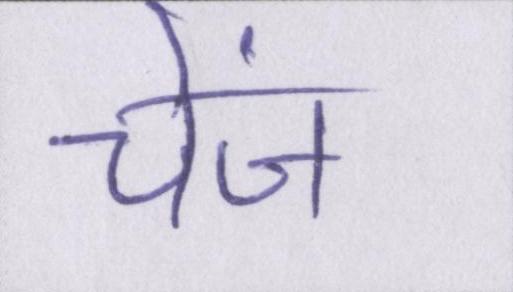 चेंज